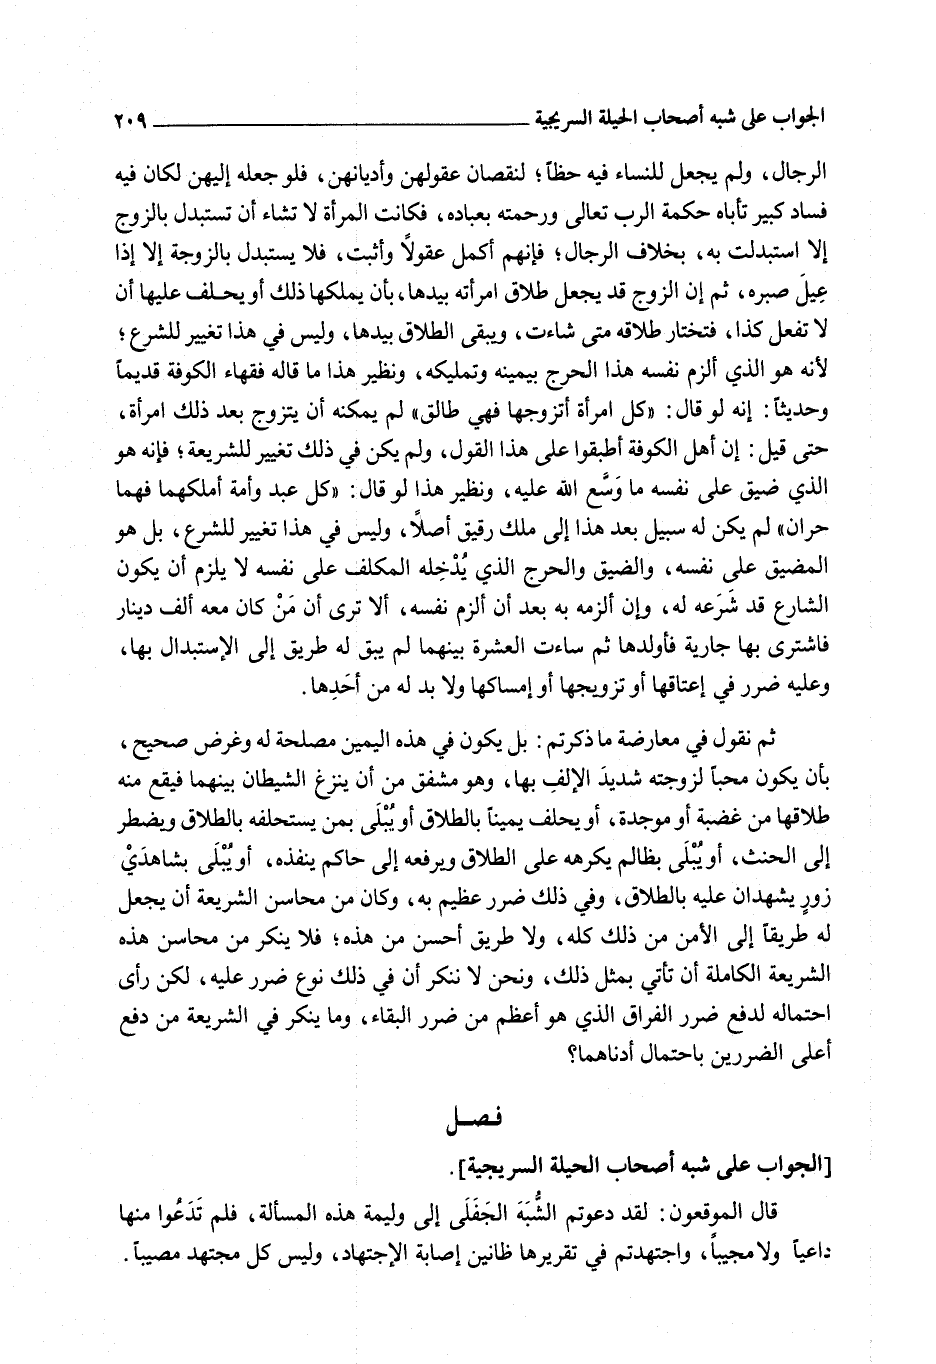 الجواب على شبه أصحاب الحيلة السريجية ــــــــــــــــــــــــــــ ٢٠٩
الرجال، ولم يجعل للنساء فيه حظاً؛ لنقصان عقولهن وأديانهن، فلو جعله إليهن لكان فيه
فساد كبير تأباه حكمة الرب تعالى ورحمته بعباده، فكانت المرأة لا تشاء أن تستبدل بالزوج
إلا استبدلت به، بخلاف الرجال؛ فإنهم أكمل عقولاً وأثبت، فلا يستبدل بالزوجة إلا إذا
عِيلَ صبره، ثم إن الزوج قد يجعل طلاق امرأته بيدها، بأن يملكها ذلك أو يحلف عليها أن
لا تفعل كذا، فتختار طلاقه متى شاءت، ويبقى الطلاق بيدها، وليس في هذا تغيير للشرع؛
لأنه هو الذي ألزم نفسه هذا الحرج بيمينه وتمليكه، ونظير هذا ما قاله فقهاء الكوفة قديماً
وحديثاً: إنه لو قال: «كل امرأة أتزوجها فهي طالق» لم يمكنه أن يتزوج بعد ذلك امرأة،
حتى قيل: إن أهل الكوفة أطبقوا على هذا القول، ولم يكن في ذلك تغيير للشريعة؛ فإنه هو
الذي ضيق على نفسه ما وَسَّع الله عليه، ونظير هذا لو قال: «كل عبد وأمة أملكهما فهما
حران» لم يكن له سبيل بعد هذا إلى ملك رقيق أصلاً، وليس في هذا تغيير للشرع، بل هو
المضيق على نفسه، والضيق والحرج الذي يُدْخِله المكلف على نفسه لا يلزم أن يكون
الشارع قد شَرَعه له، وإن ألزمه به بعد أن ألزم نفسه، ألا ترى أن مَنْ كان معه ألف دينار
فاشترى بها جارية فأولدها ثم ساءت العشرة بينهما لم يبق له طريق إلى الإستبدال بها،
وعليه ضرر في إعتاقها أو تزويجها أو إمساكها ولا بد له من أحَدِها.
ثم نقول في معارضة ما ذكرتم: بل يكون في هذه اليمين مصلحة له وغرض صحيح،
بأن يكون محباً لزوجته شديدَ الإلفِ بها، وهو مشفق من أن ينزغ الشيطان بينهما فيقع منه
طلاقها من غضبة أو موجدة، أو يحلف يميناً بالطلاق أو يُبْلَى بمن يستحلفه بالطلاق ويضطر
إلى الحنث، أو يُبْلَى بظالم يكرهه على الطلاق ويرفعه إلى حاكم ينفذه، أو يُبْلَى بشاهدَيْ
زورٍ يشهدان عليه بالطلاق، وفي ذلك ضرر عظيم به، وكان من محاسن الشريعة أن يجعل
له طريقاً إلى الأمن من ذلك كله، ولا طريق أحسن من هذه؛ فلا ينكر من محاسن هذه
الشريعة الكاملة أن تأتي بمثل ذلك، ونحن لا ننكر أن في ذلك نوع ضرر عليه، لكن رأى
احتماله لدفع ضرر الفراق الذي هو أعظم من ضرر البقاء، وما ينكر في الشريعة من دفع
أعلى الضررين باحتمال أدناهما؟
فصـل
[الجواب على شبه أصحاب الحيلة السريجية].
قال الموقعون: لقد دعوتم الشُّبَهَ الجَفَلَى إلى وليمة هذه المسألة، فلم تَدَعُوا منها
داعياً ولا مجيباً، واجتهدتم في تقريرها ظانين إصابة الإجتهاد، وليس كل مجتهد مصيباً.